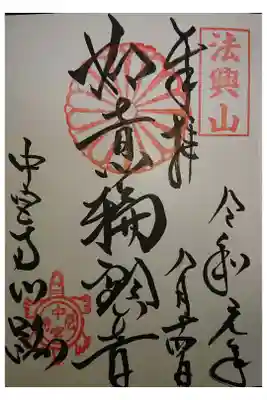 法興山
奉拝
令和元年
八月十四日
如意輪観音
中宮寺門跡